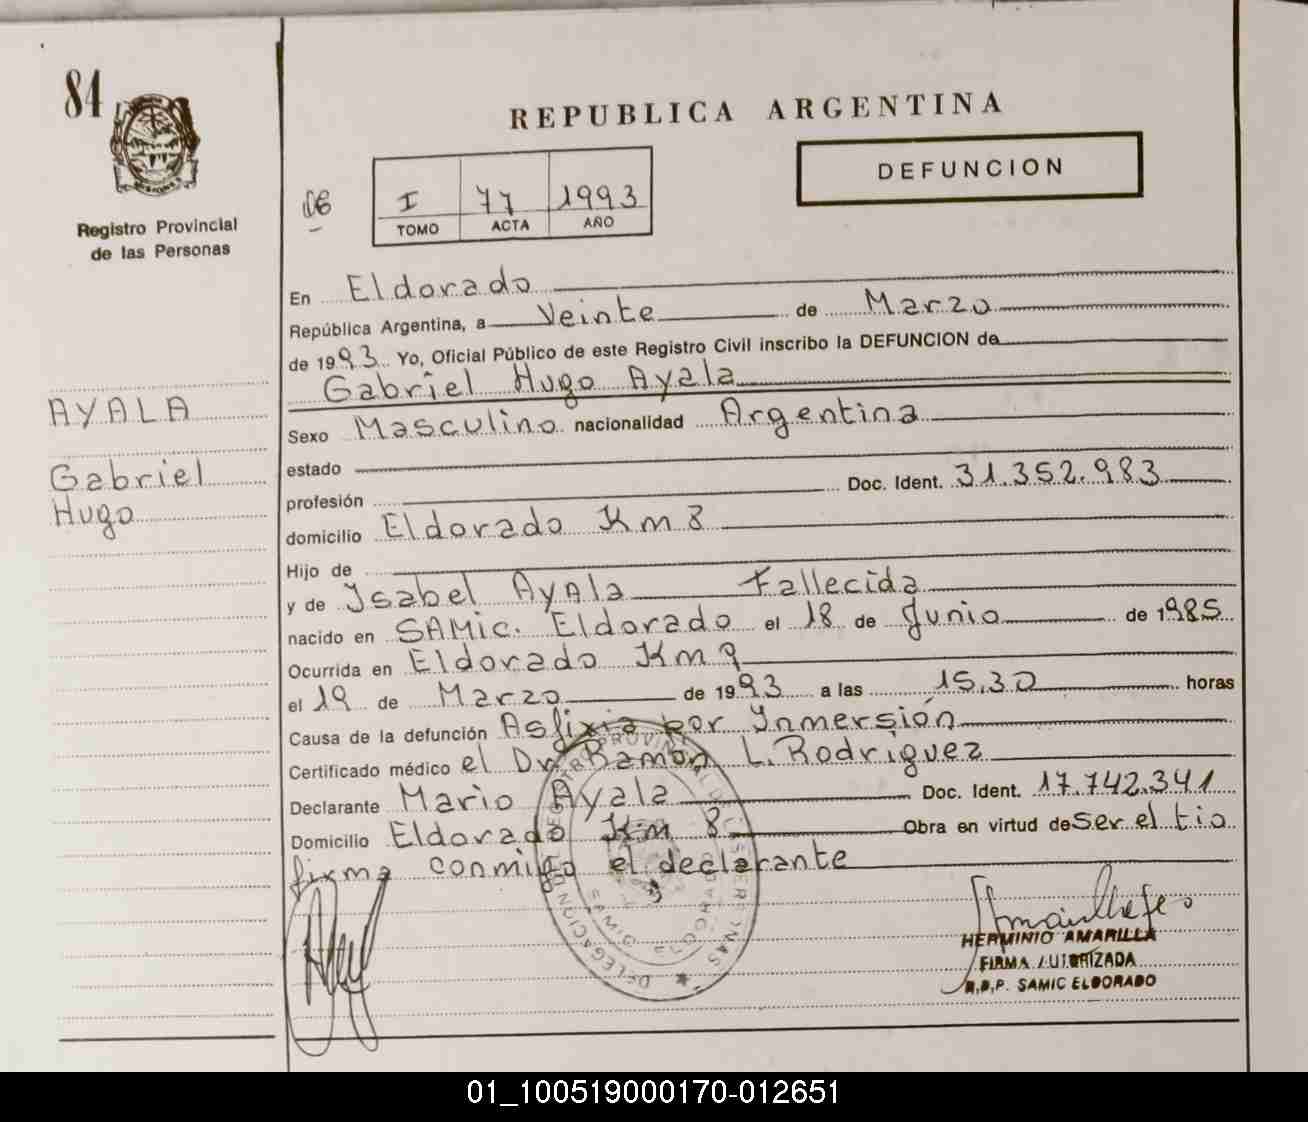 84
REPUBLICA ARGENTINA
DEFUNCION
Registro Provincial
de las Personas
I 77 1993
TOMO ACTA AÑO
En Eldorado
República Argentina, a Veinte de Marzo
de 1993 Yo, Oficial Público de este Registro Civil inscribo la DEFUNCION de
Gabriel Hugo Ayala
AYALA
Gabriel
Hugo
Sexo Masculino nacionalidad Argentina
estado
profesión Doc. Ident. 31.352.983
domicilio Eldorado Km 8
Hijo de
y de Isabel Ayala Fallecida
nacido en SAMic. Eldorado el 18 de Junio de 1985
Ocurrida en Eldorado Km 9
el 19 de Marzo de 1993 a las 15,30 horas
Causa de la defunción Asfixia por Inmersión
Certificado médico el Dr. Ramón L. Rodríguez
Declarante Mario Ayala Doc. Ident. 17.742.341
Domicilio Eldorado Km 8 Obra en virtud de ser el tio
firma conmigo el declarante
HERMINIO AMARILLA
FIRMA AUTORIZADA
R.P.P. SAMIC ELDORADO
01_100519000170-012651